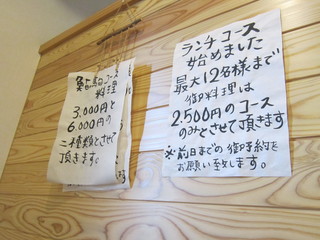 ランチコース
始めました
最大12名様まで
御料理は
2.500円のコース
のみとさせて頂きます
※前日までの御予約を
お願い致します。
コース
料理
3.000円と
6.000円の
二種類とさせて
頂きます。